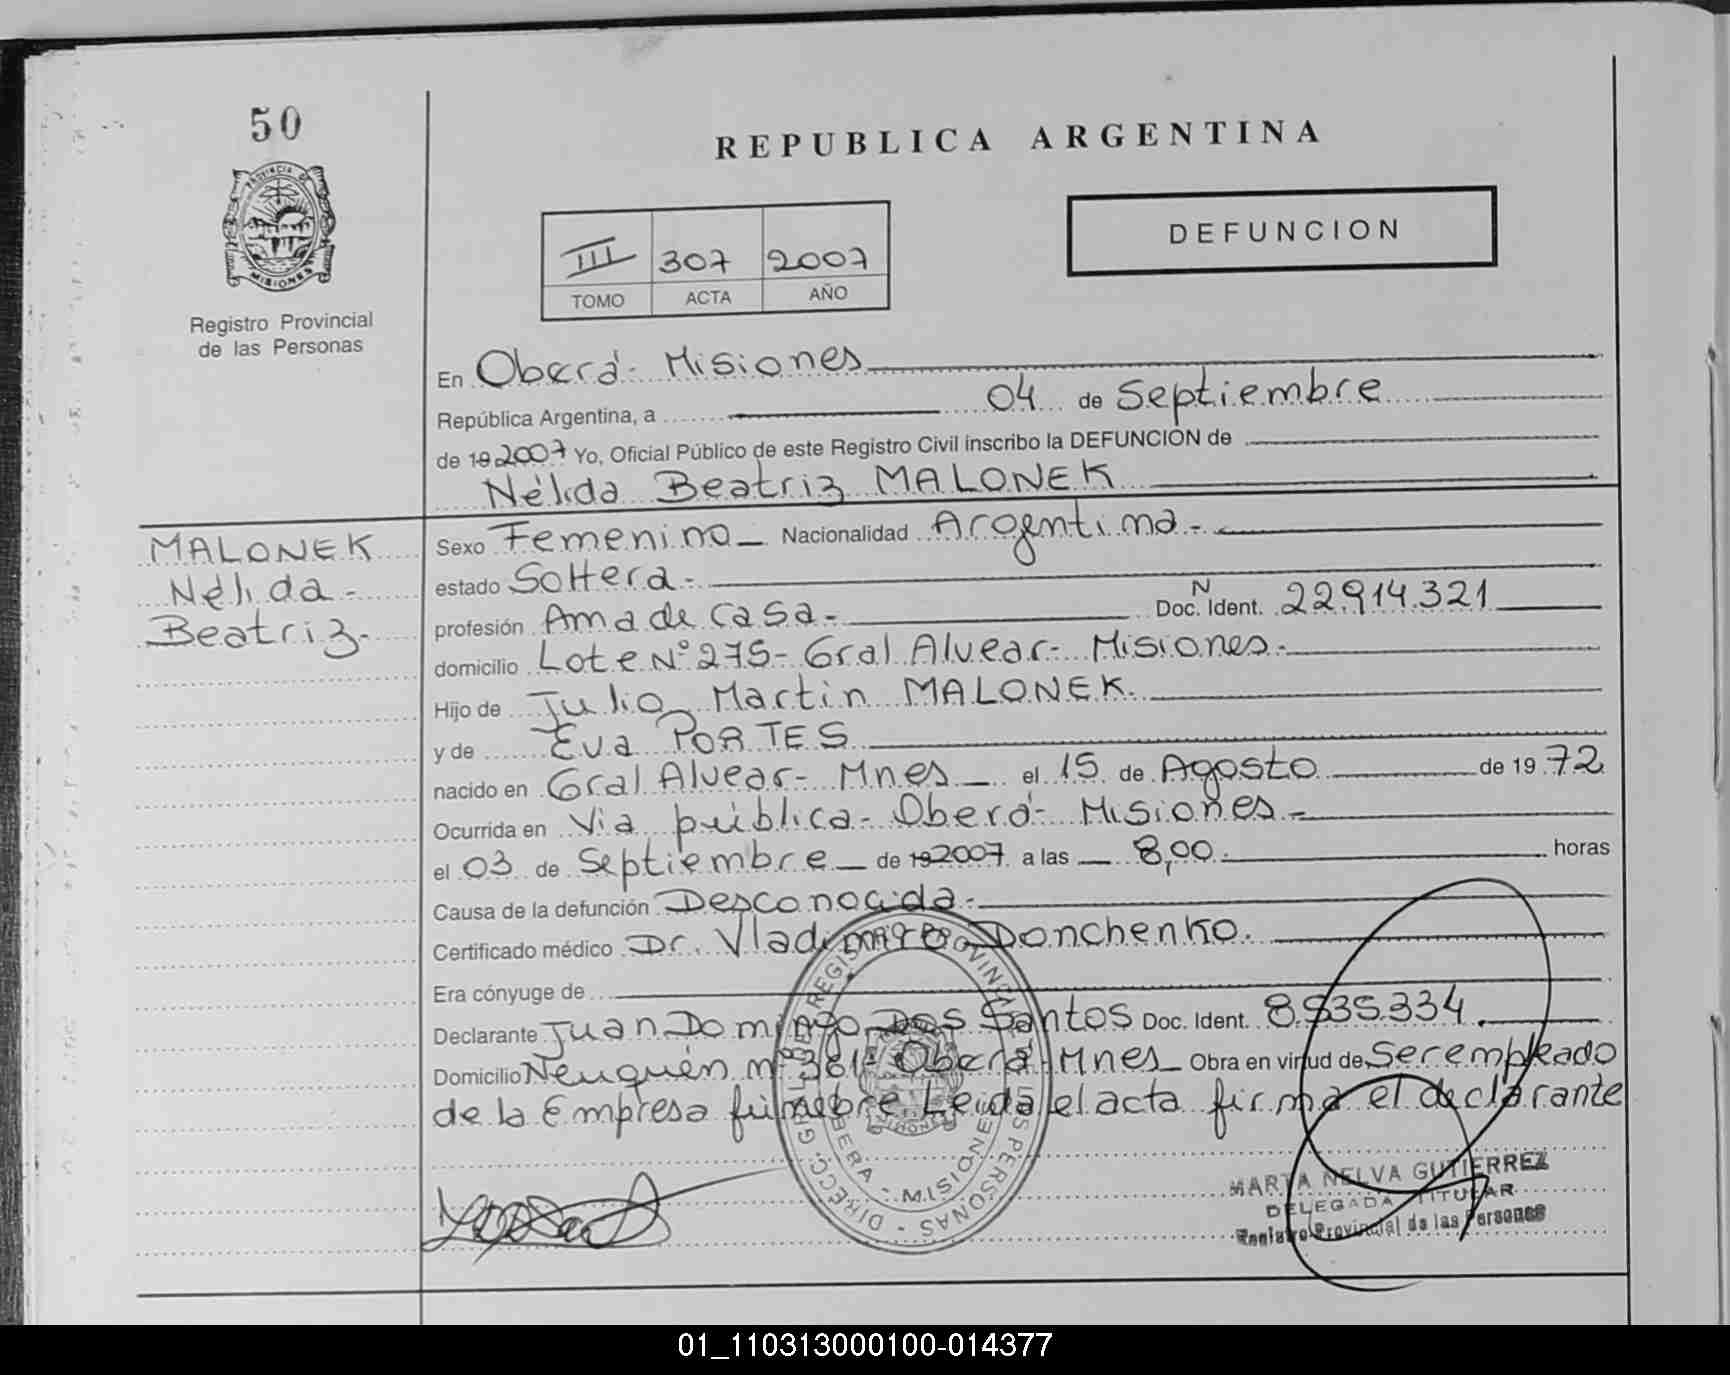 50
REPUBLICA ARGENTINA
PROVINCIA DE MISIONES
Registro Provincial
de las Personas
III 307 2007
TOMO ACTA AÑO
DEFUNCION
En Oberá - Misiones
República Argentina, a 04 de Septiembre
de 19 2007 Yo, Oficial Público de este Registro Civil inscribo la DEFUNCION de
Nélida Beatriz MALONEK
MALONEK
Nélida -
Beatriz -
Sexo Femenino - Nacionalidad Argentina -
estado Soltera -
profesión Ama de casa - Doc. Ident. N 22.914.321
domicilio Lote Nº 275 - Gral Alvear - Misiones -
Hijo de Julio Martin MALONEK.
y de Eva PORTES
nacido en Gral Alvear - Mnes - el 15 de Agosto de 19 72
Ocurrida en Via pública - Oberá - Misiones -
el 03 de Septiembre - de 19 2007 a las 8,00 horas
Causa de la defunción Desconocida -
Certificado médico Dr. Vladimiro Donchenko.
Era cónyuge de
Declarante Juan Domingo Dos Santos Doc. Ident. 8.535.334
Domicilio Neuquén nº 381 - Oberá - Mnes - Obra en virtud de Ser empleado
de la Empresa fúnebre Leida el acta firma el declarante
DIRECC. GRAL. DE REGISTRO PROVINCIAL DE LAS PERSONAS
OBERA - MISIONES
MARTA NELVA GUTIERREZ
DELEGADA TITULAR
Registro Provincial de las Personas
01_110313000100-014377